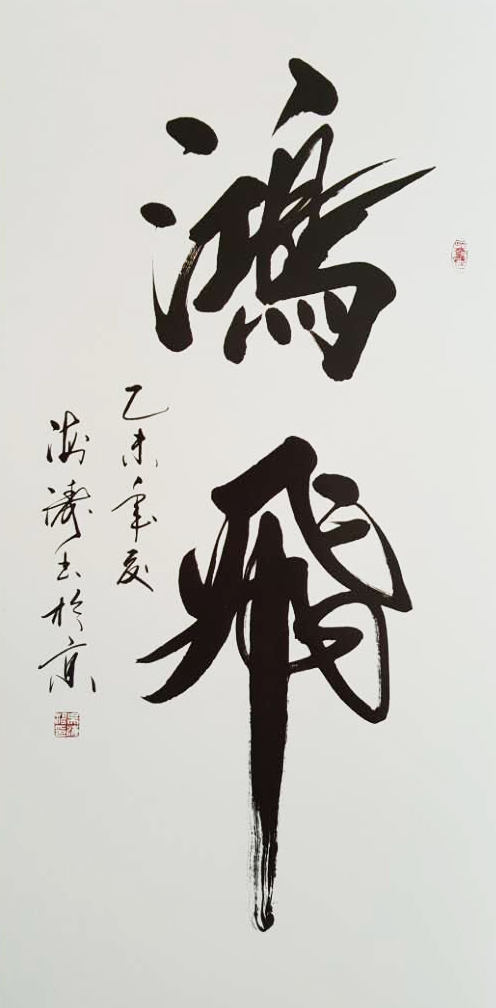 鴻飛
乙未年夏
海濤书於京